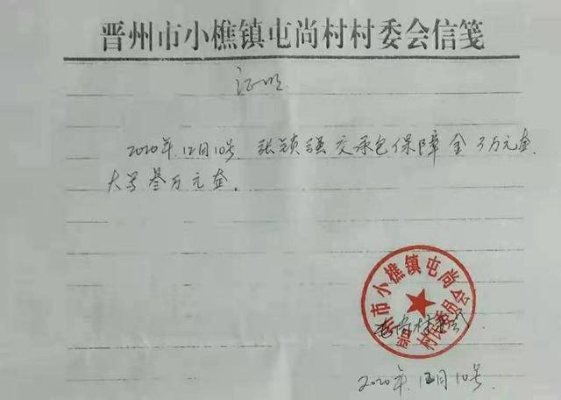 晋州市小樵镇屯尚村村委会信笺
证明
2020年12月10号 张锁强 交承包保障金 3万元整.
大写叁万元整.
晋州市小樵镇屯尚村
村委会
2020年12月10号